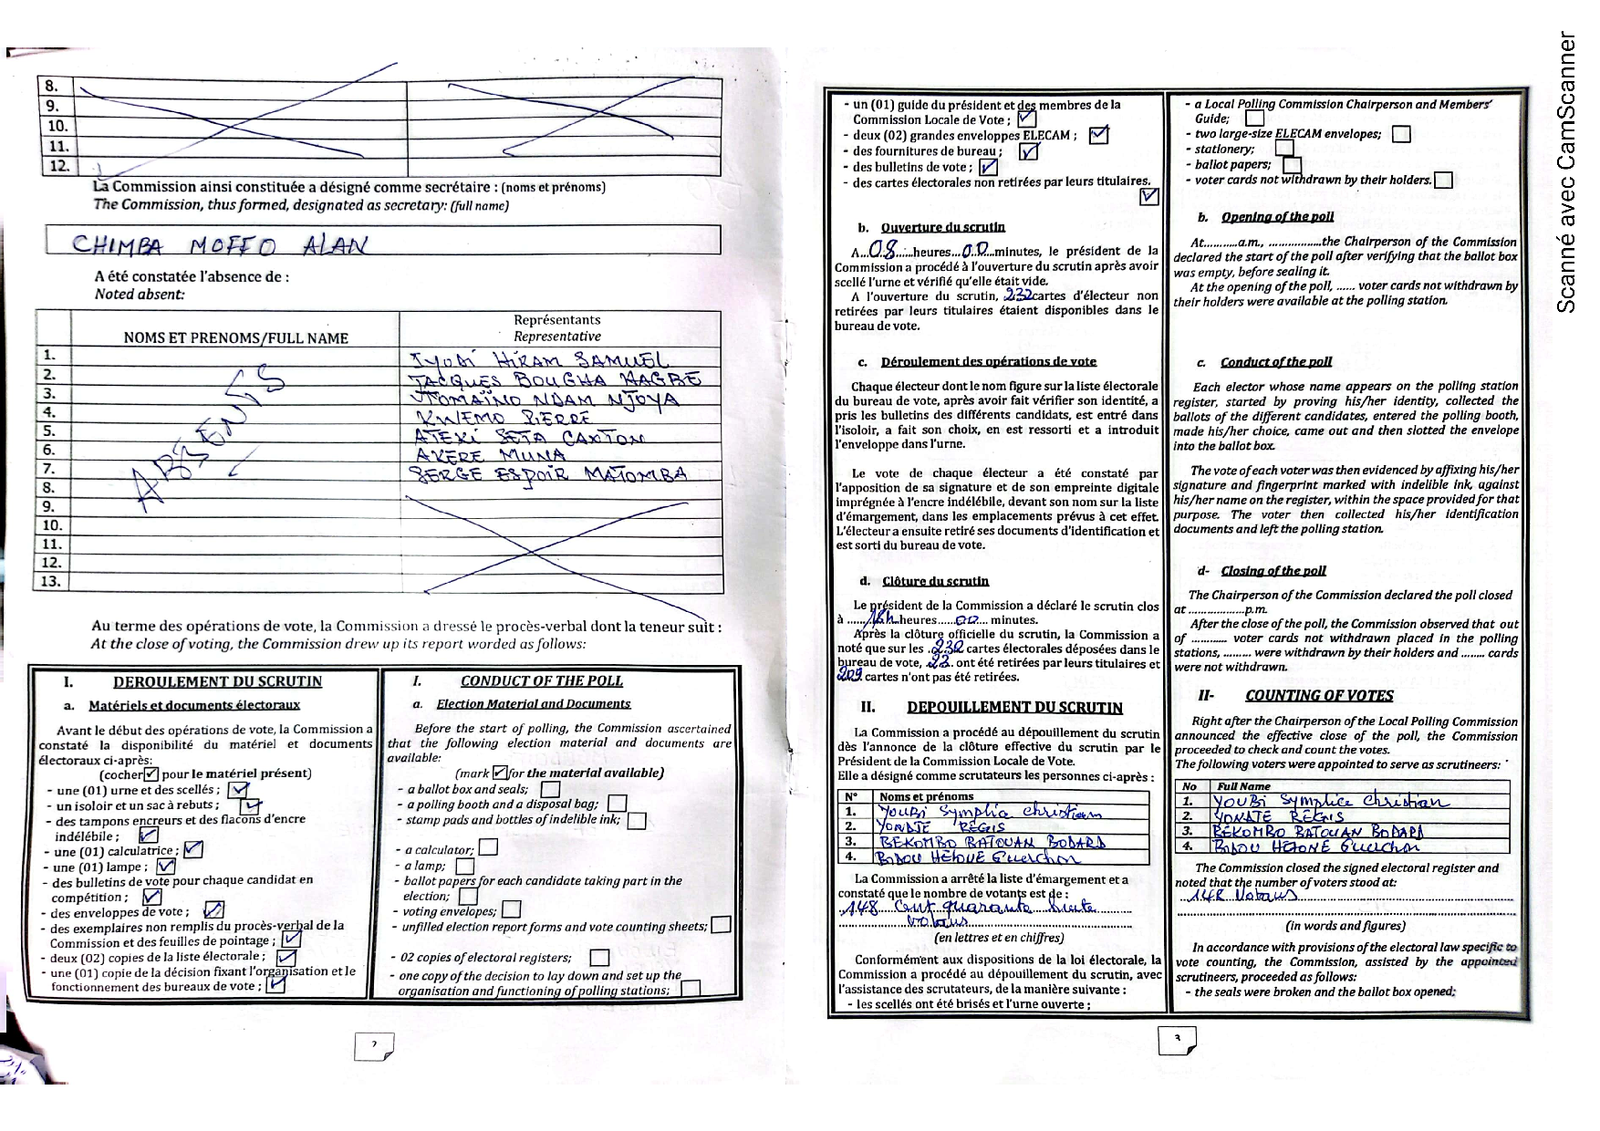 8.
9.
10.
11.
12.
La Commission ainsi constituée a désigné comme secrétaire : (noms et prénoms)
The Commission, thus formed, designated as secretary: (full name)
CHIMBA MOFFO ALAN
A été constatée l'absence de :
Noted absent:
NOMS ET PRENOMS/FULL NAME
Représentants
Representative
ABSENTS
1. HIRAM SAMUEL
2. JACQUES BOUGHA HAGBE
3. NDAM NJOYA
4. KWEMO PIERRE
5. ATEKI SETA CAXTON
6. AKERE MUNA
7. SERGE ESPOIR MATOMBA
8.
9.
10.
11.
12.
13.
Au terme des opérations de vote, la Commission a dressé le procès-verbal dont la teneur suit :
At the close of voting, the Commission drew up its report worded as follows:
I. DEROULEMENT DU SCRUTIN
a. Matériels et documents électoraux
Avant le début des opérations de vote, la Commission a
constaté la disponibilité du matériel et documents
électoraux ci-après:
(cocher pour le matériel présent)
- une (01) urne et des scellés ;
- un isoloir et un sac à rebuts ;
- des tampons encreurs et des flacons d'encre
indélébile ;
- une (01) calculatrice ;
- une (01) lampe ;
- des bulletins de vote pour chaque candidat en
compétition ;
- des enveloppes de vote ;
- des exemplaires non remplis du procès-verbal de la
Commission et des feuilles de pointage ;
- deux (02) copies de la liste électorale ;
- une (01) copie de la décision fixant l'organisation et le
fonctionnement des bureaux de vote ;
I. CONDUCT OF THE POLL
a. Election Material and Documents
Before the start of polling, the Commission ascertained
that the following election material and documents are
available:
(mark for the material available)
- a ballot box and seals;
- a polling booth and a disposal bag;
- stamp pads and bottles of indelible ink;
- a calculator;
- a lamp;
- ballot papers for each candidate taking part in the
election;
- voting envelopes;
- unfilled election report forms and vote counting sheets;
- 02 copies of electoral registers;
- one copy of the decision to lay down and set up the
organisation and functioning of polling stations;
2
- un (01) guide du président et des membres de la
Commission Locale de Vote ;
- deux (02) grandes enveloppes ELECAM ;
- des fournitures de bureau ;
- des bulletins de vote ;
- des cartes électorales non retirées par leurs titulaires.
b. Ouverture du scrutin
A...08......heures...00...minutes, le président de la
Commission a procédé à l'ouverture du scrutin après avoir
scellé l'urne et vérifié qu'elle était vide.
A l'ouverture du scrutin, 232 cartes d'électeur non
retirées par leurs titulaires étaient disponibles dans le
bureau de vote.
c. Déroulement des opérations de vote
Chaque électeur dont le nom figure sur la liste électorale
du bureau de vote, après avoir fait vérifier son identité, a
pris les bulletins des différents candidats, est entré dans
l'isoloir, a fait son choix, en est ressorti et a introduit
l'enveloppe dans l'urne.
Le vote de chaque électeur a été constaté par
l'apposition de sa signature et de son empreinte digitale
imprégnée à l'encre indélébile, devant son nom sur la liste
d'émargement, dans les emplacements prévus à cet effet.
L'électeur a ensuite retiré ses documents d'identification et
est sorti du bureau de vote.
d. Clôture du scrutin
Le président de la Commission a déclaré le scrutin clos
à .....18h..heures....00... minutes.
Après la clôture officielle du scrutin, la Commission a
noté que sur les .232 cartes électorales déposées dans le
bureau de vote, .23. ont été retirées par leurs titulaires et
209 cartes n'ont pas été retirées.
II. DEPOUILLEMENT DU SCRUTIN
La Commission a procédé au dépouillement du scrutin
dès l'annonce de la clôture effective du scrutin par le
Président de la Commission Locale de Vote.
Elle a désigné comme scrutateurs les personnes ci-après :
N° Noms et prénoms
1. YOUBI Symplice Christian
2. YONATE REGIS
3. BEKOMBO BATOUAN BODARD
4. BIDOU
La Commission a arrêté la liste d'émargement et a
constaté que le nombre de votants est de :
148 Cent quarante huite
(en lettres et en chiffres)
Conformément aux dispositions de la loi électorale, la
Commission a procédé au dépouillement du scrutin, avec
l'assistance des scrutateurs, de la manière suivante :
- les scellés ont été brisés et l'urne ouverte ;
- a Local Polling Commission Chairperson and Members'
Guide;
- two large-size ELECAM envelopes;
- stationery;
- ballot papers;
- voter cards not withdrawn by their holders.
b. Opening of the poll
At..........a.m., .................the Chairperson of the Commission
declared the start of the poll after verifying that the ballot box
was empty, before sealing it.
At the opening of the poll, ...... voter cards not withdrawn by
their holders were available at the polling station.
c. Conduct of the poll
Each elector whose name appears on the polling station
register, started by proving his/her identity, collected the
ballots of the different candidates, entered the polling booth,
made his/her choice, came out and then slotted the envelope
into the ballot box.
The vote of each voter was then evidenced by affixing his/her
signature and fingerprint marked with indelible ink, against
his/her name on the register, within the space provided for that
purpose. The voter then collected his/her identification
documents and left the polling station.
d- Closing of the poll
The Chairperson of the Commission declared the poll closed
at ..................p.m.
After the close of the poll, the Commission observed that out
of ........... voter cards not withdrawn placed in the polling
stations, ......... were withdrawn by their holders and ........ cards
were not withdrawn.
II- COUNTING OF VOTES
Right after the Chairperson of the Local Polling Commission
announced the effective close of the poll, the Commission
proceeded to check and count the votes.
The following voters were appointed to serve as scrutineers:
No Full Name
1. YOUBI Symplice Christian
2. YONATE REGIS
3. BEKOMBO BATOUAN BODARD
4. BIDOU
The Commission closed the signed electoral register and
noted that the number of voters stood at:
148
(In words and figures)
In accordance with provisions of the electoral law specific to
vote counting, the Commission, assisted by the appointed
scrutineers, proceeded as follows:
- the seals were broken and the ballot box opened;
3
Scanné avec CamScanner